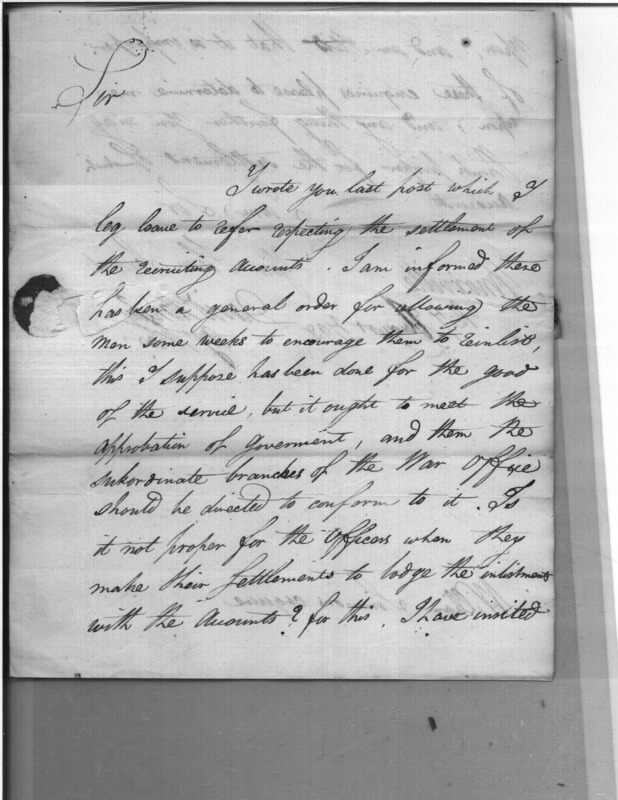 Sir
I wrote you last post which I
beg leave to refer respecting the settlement of
the recruiting Accounts. I am informed there
has been a general order for allowing the
men some weeks to encourage them to reinlist,
this I suppose has been done for the good
of the service, but it ought to meet the
approbation of Goverment, and them the
subordinate branches of the War Office
should be directed to conform to it. Is
it not proper for the Officers when they
make their settlements to lodge the inlistments
with the Accounts? for this, I have insisted